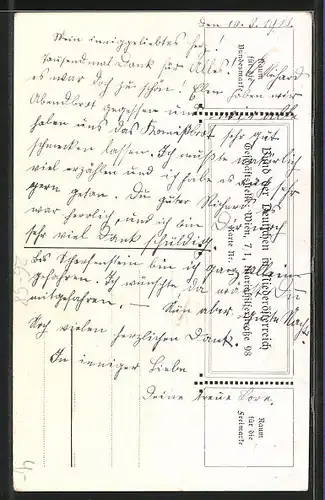 den 10. 8. 1918.
Mein inniggeliebtes Herz!
Tausendmal Dank für Alles! Richard
es war doch zu schön! Eben haben wir
Abendbrot gegessen und
haben uns das Kommißbrot sehr gut
schmecken lassen. Ich mußte natürlich
viel erzählen und ich habe es auch sehr
gern getan. Du guter Richard, es
war herrlich, und ich bin Dir noch
sehr viel Dank schuldig.
bin ich ganz allein
gefahren. Ich wünschte da wärst Du
mitgefahren. — Nun aber Gute Nacht
Noch vielen herzlichen Dank.
In inniger Liebe
Deine treue Dora.
Raum
für die
Bundesmarke
Bund der Deutschen in Niederösterreich
Geschäftsstelle: Wien, 7/1, Mariahilferstraße 98
Karte Nr.
Raum
für die
Freimarke